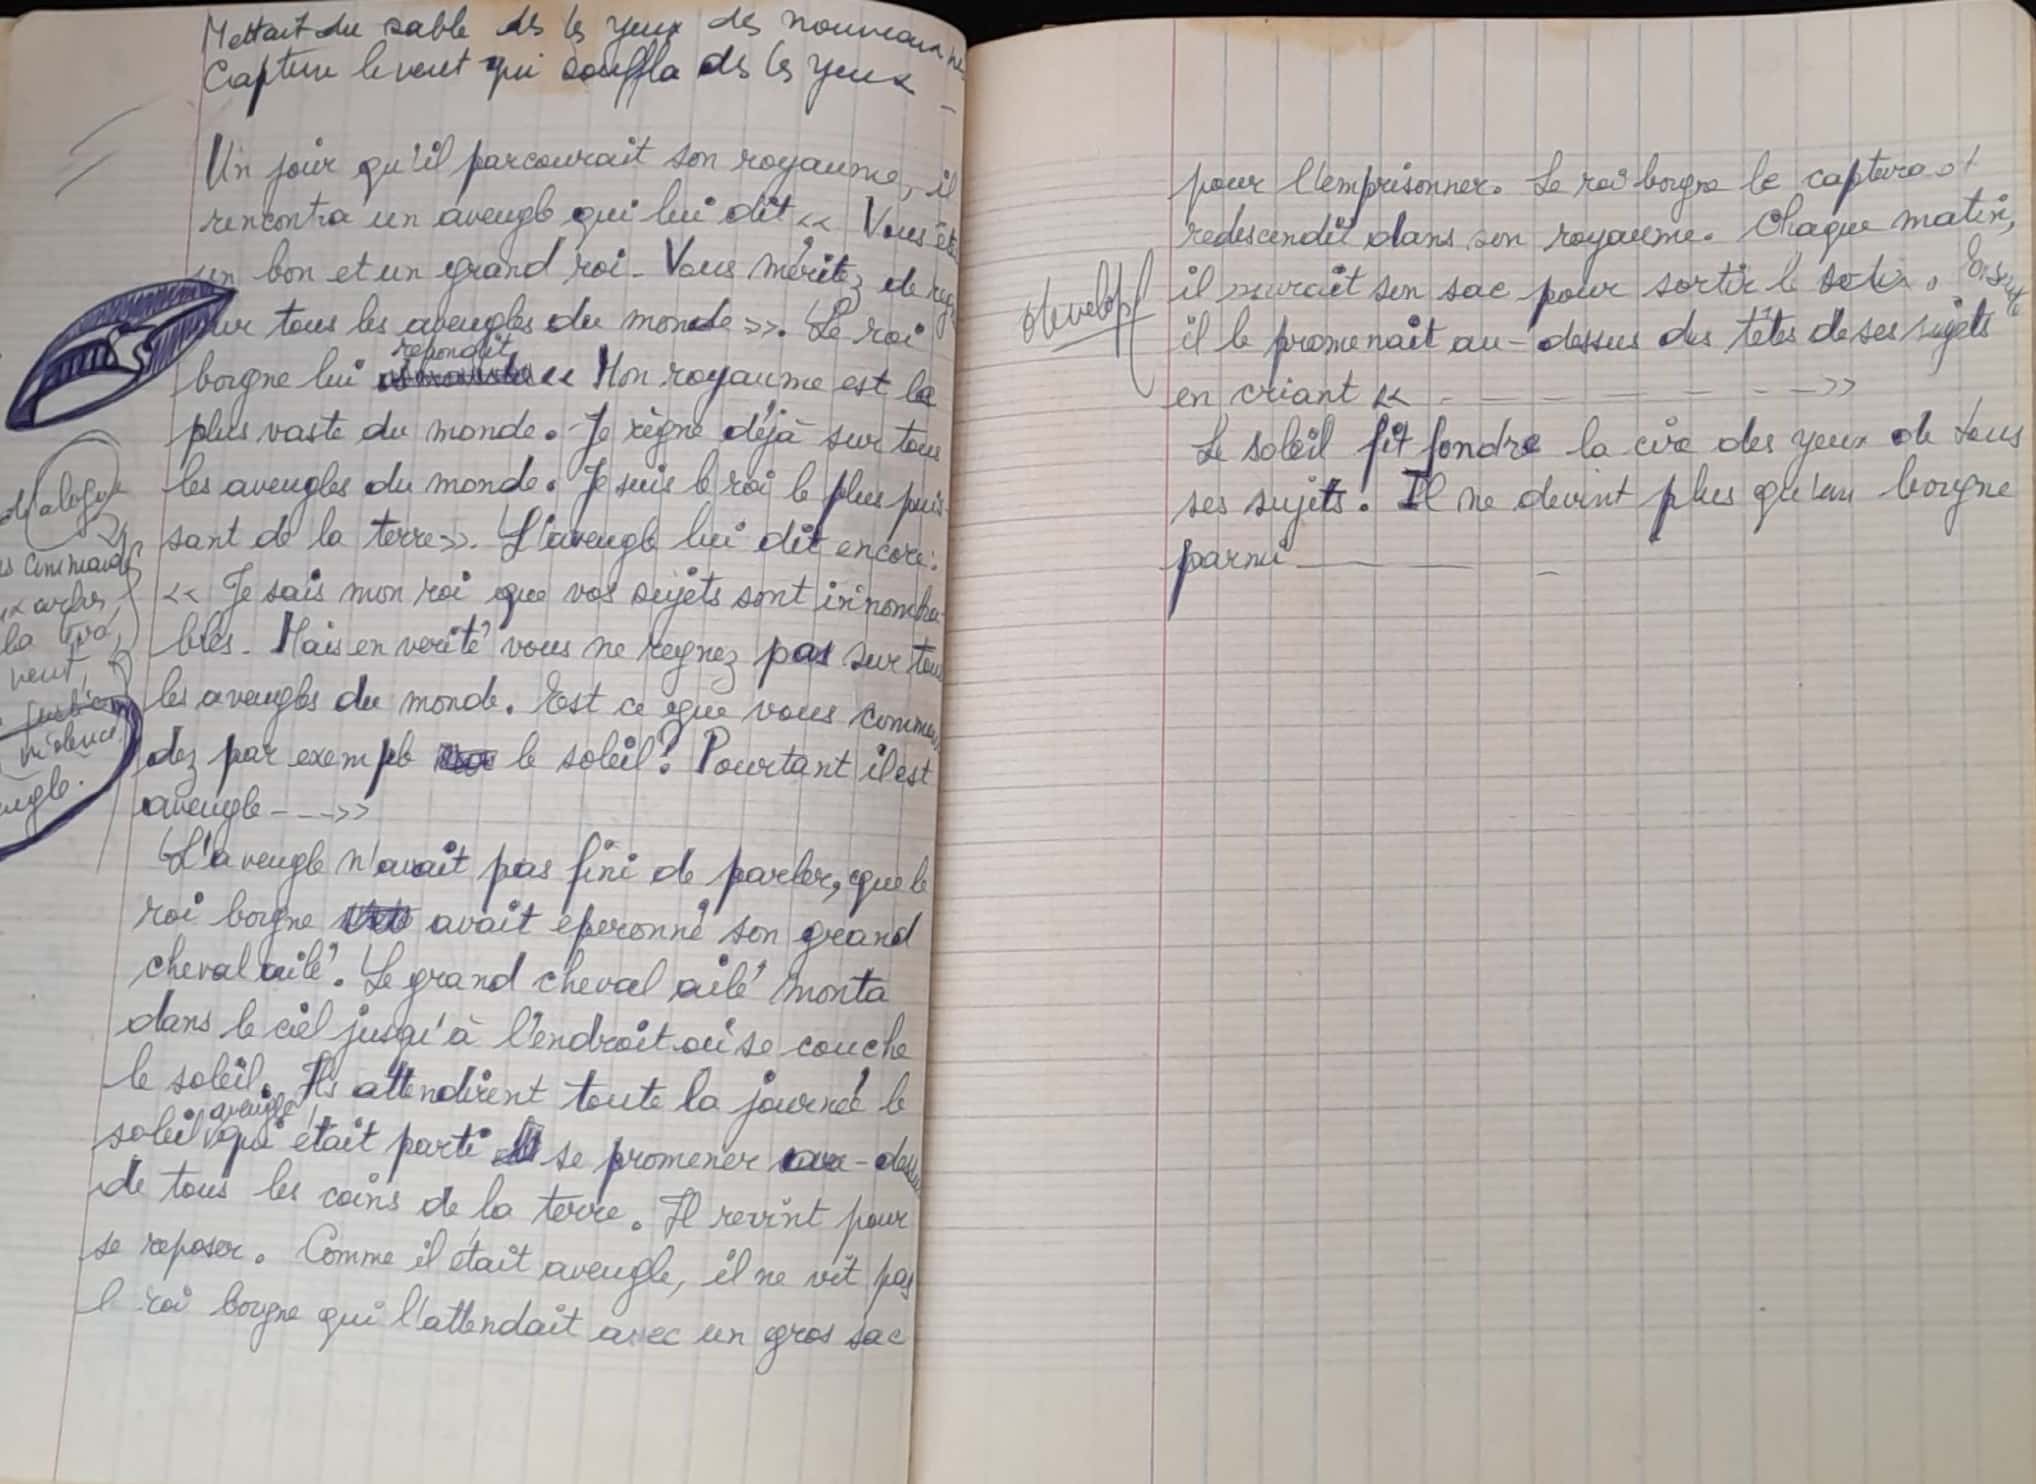 Mettait du sable ds les yeux des nouveaux
Capture le vent qui souffla ds les yeux –
Un jour qu'il parcourait son royaume, il
rencontra un aveugle qui lui dit << Vous êtes
un bon et un grand roi. Vous méritez de
sur tous les aveugles du monde >>. Le roi
répondit
borgne lui << Mon royaume est le
plus vaste du monde. Je règne déjà sur tous
les aveugles du monde. Je suis le roi le plus puis-
sant de la terre >>. L'aveugle lui dit encore :
<< Je sais mon roi que vos sujets sont innombra-
bles. Mais en verité vous ne regnez pas sur tous
les aveugles du monde. Est ce que vous comman-
dez par exemple le soleil ? Pourtant il est
aveugle - - - >>
L'aveugle n'avait pas fini de parler, que le
roi borgne avait eperonné son grand
cheval ailé. Le grand cheval ailé monta
dans le ciel jusqu'à l'endroit où se couche
le soleil. Ils attendirent toute la journée le
aveugle
soleil qui était parti se promener au-dessus
de tous les coins de la terre. Il revint pour
se reposer. Comme il était aveugle, il ne vit pas
le roi borgne qui l'attendait avec un gros sac
dialogue
vent,
violence
pour l'emprisonner. Le roi borgne le captura et
redescendit dans son royaume. Chaque matin,
il ouvrait son sac pour sortir le soleil. Ensuite
il le promenait au-dessus des têtes de ses sujets
en criant << - - - - - - - >>
Le soleil fit fondre la cire des yeux de tous
ses sujets. Il ne devint plus qu'un borgne
parmi — — –
develop